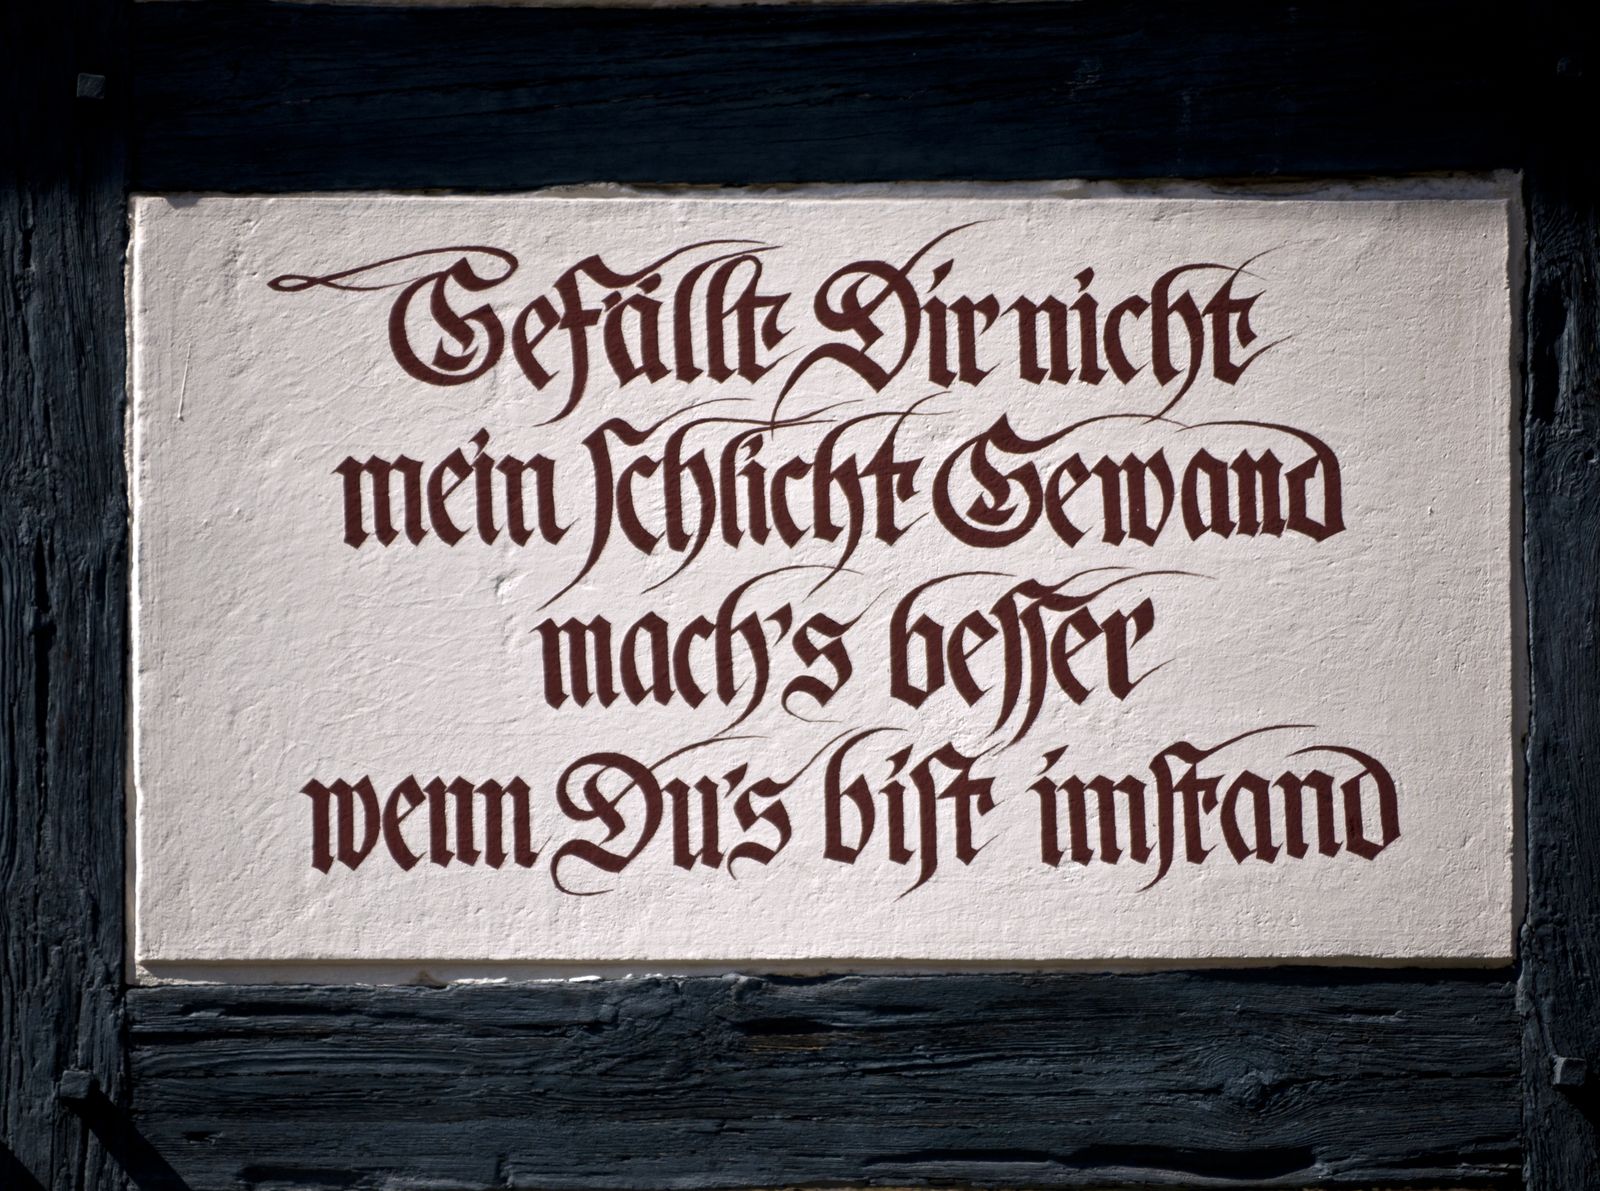 Gefällt Dir nicht
mein ſchlicht Gewand
mach's beſſer
wenn Du's biſt imſtand